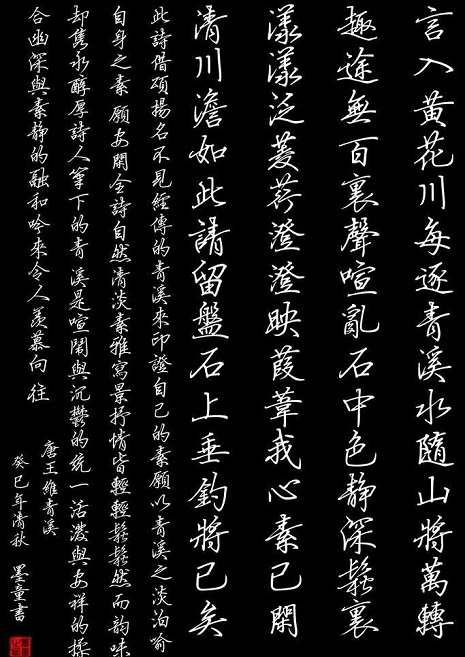 言入黄花川每逐青溪水隨山將萬轉
趣途無百裏聲喧亂石中色靜深鬆裏
漾漾泛菱荇澄澄映葭葦我心素已閑
清川澹如此請留盤石上垂釣將已矣
此詩借頌揚名不見經傳的青溪來印證自己的素願以青溪之淡泊喻
自身之素願安閑全詩自然清淡素雅寫景抒情皆輕輕鬆鬆然而韵味
却雋永醇厚詩人筆下的青溪是喧鬧與沉鬱的統一活潑與安祥的揉
合幽深與素靜的融和吟來令人羨慕向往
唐王維青溪
癸巳年清秋 墨童書